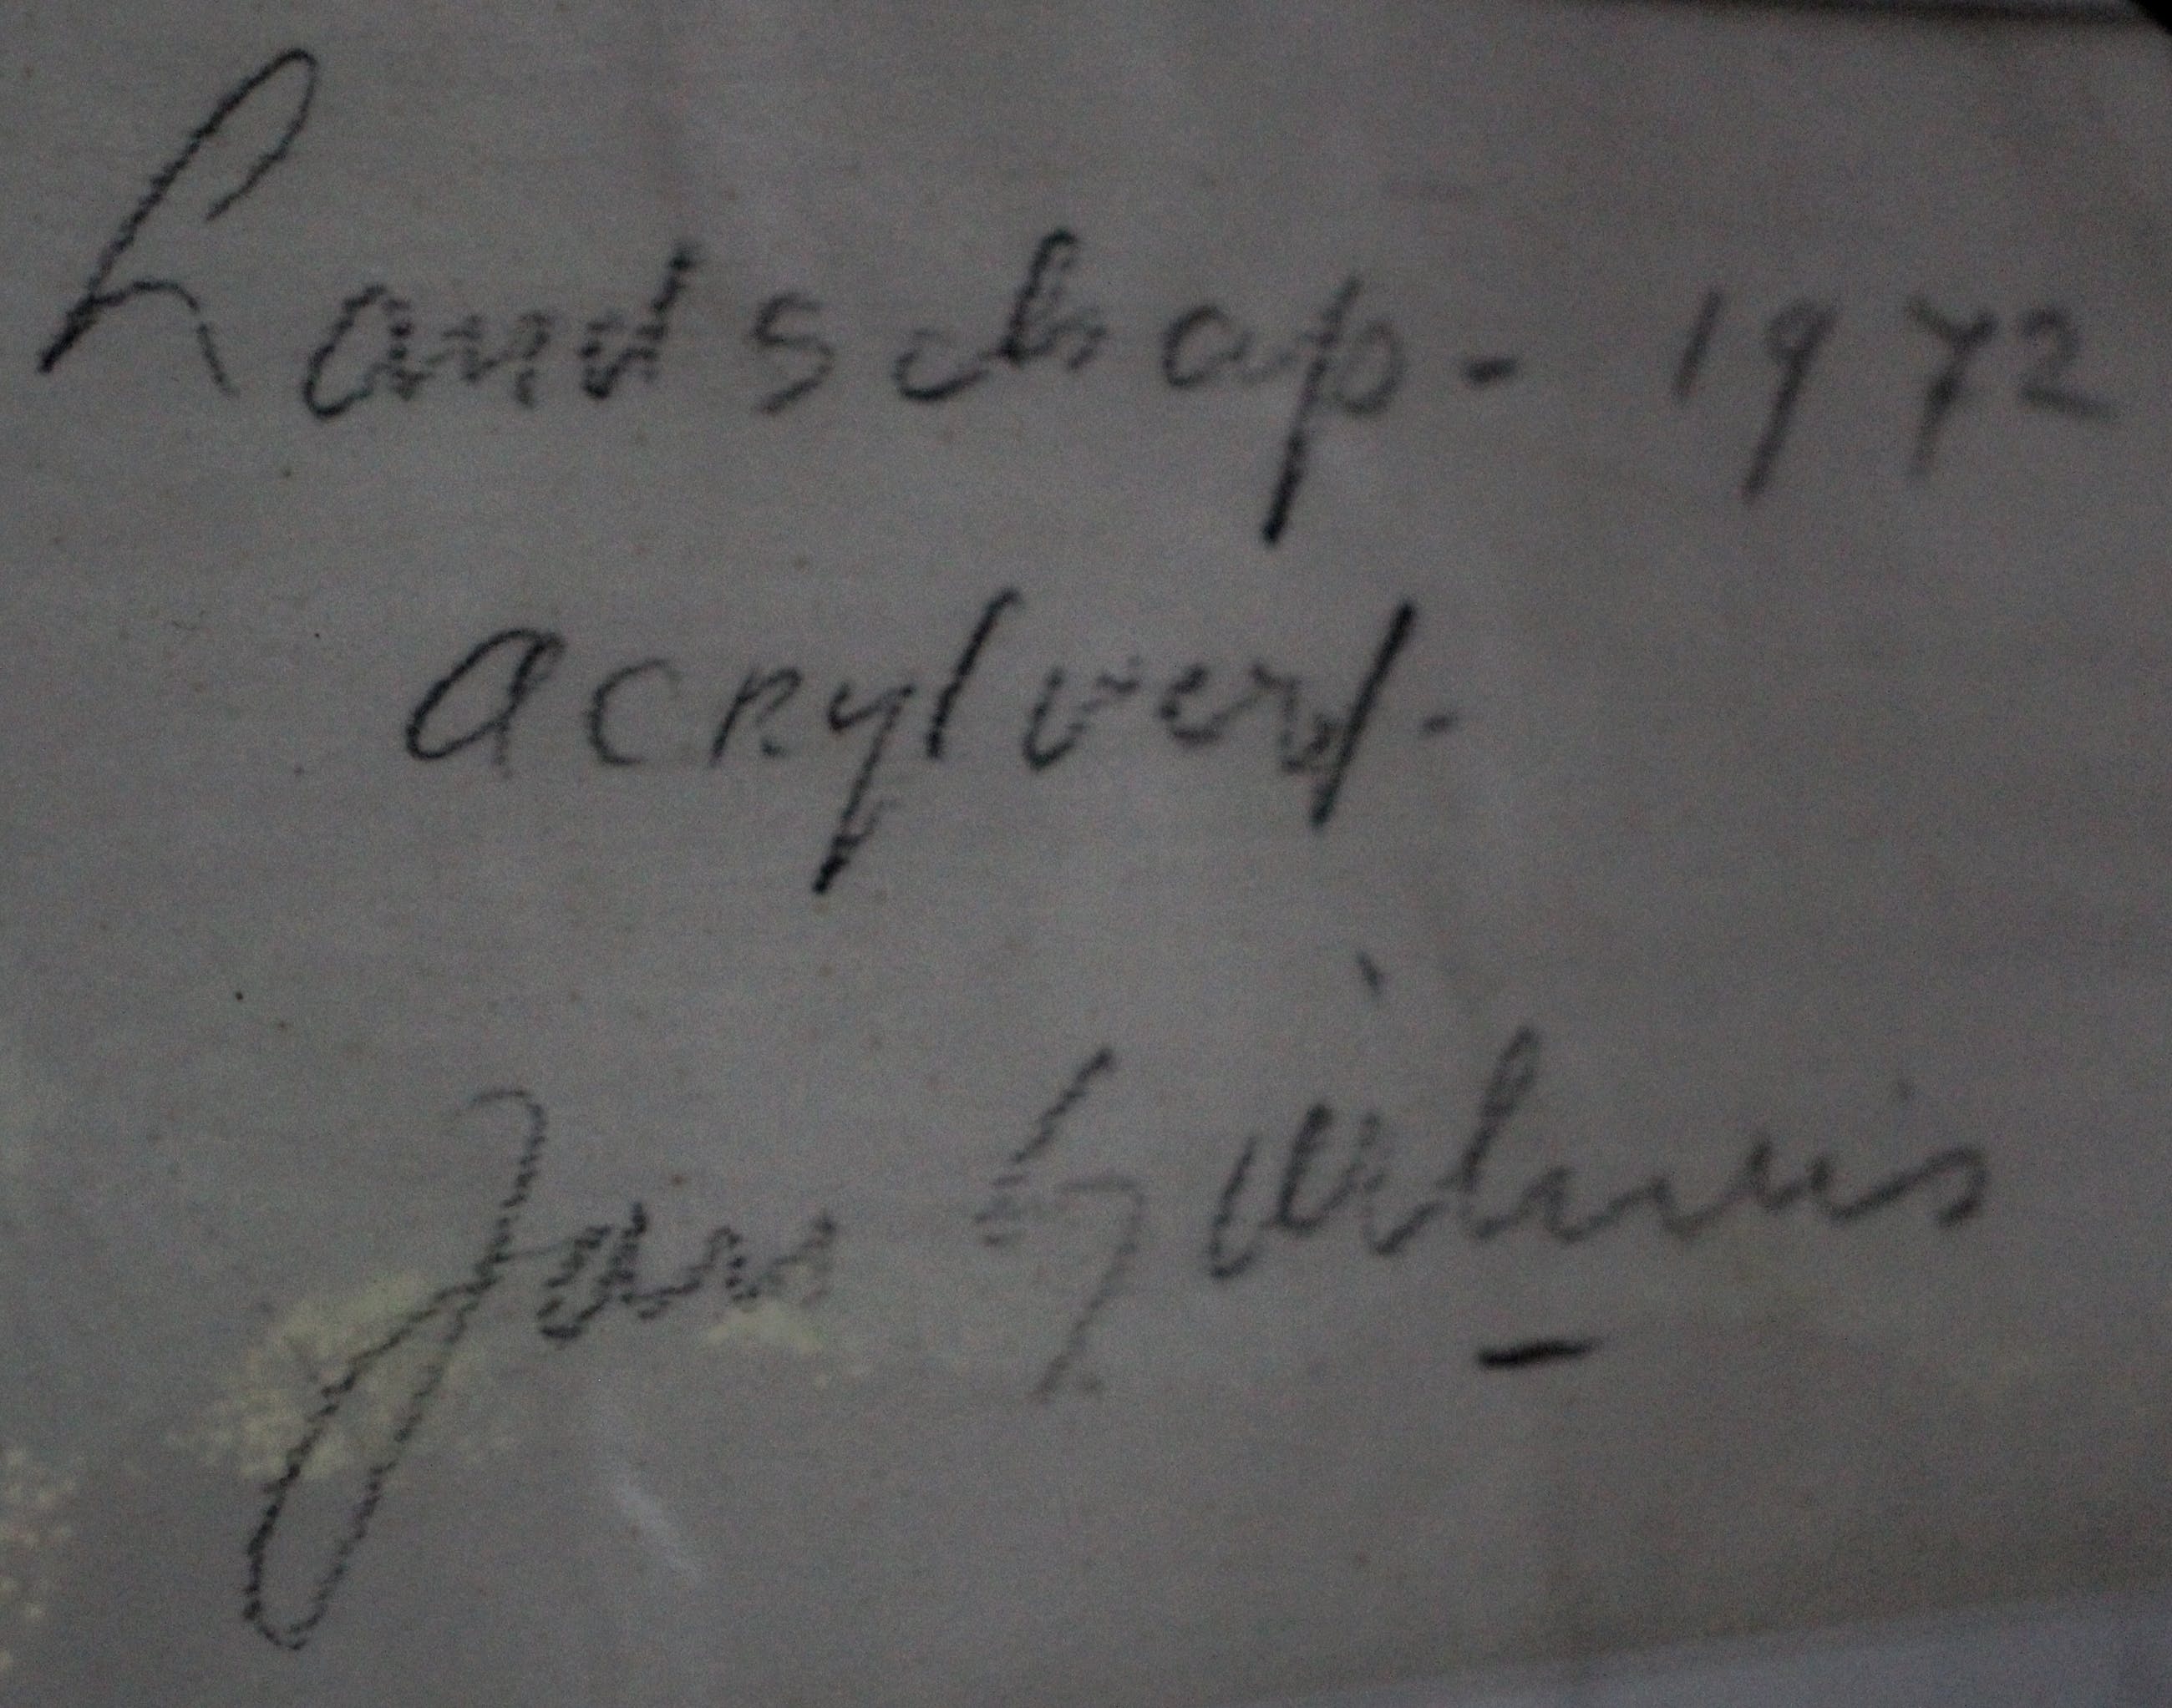 Landschap - 1972
acrylverf.
Jan